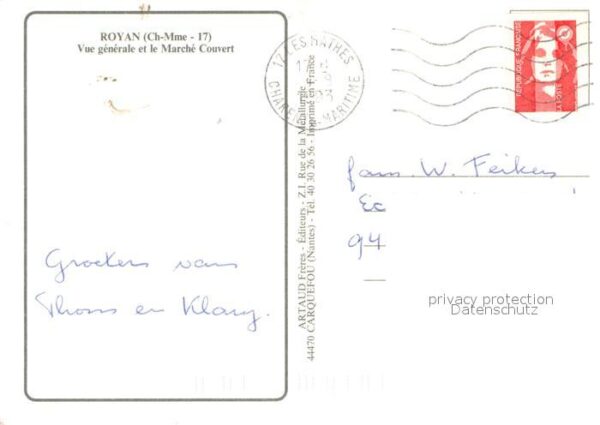 ROYAN (Ch-Mme - 17)
Vue générale et le Marché Couvert
17 LES MATHES
CHARENTE MARITIME
REPUBLIQUE FRANÇAISE
ARTAUD Frères - Éditeurs - Z.I. Rue de la Métallurgie
44470 CARQUEFOU (Nantes) - Tél. 40 30 26 56 - Imprimé en France
fam. W. Feikens
Ec
94
Groeten van
Thoms en Klary.
privacy protection
Datenschutz